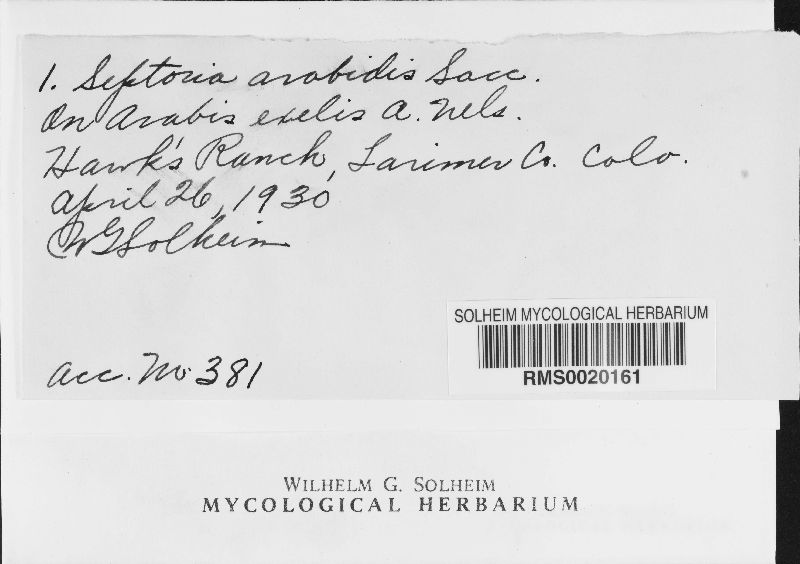 1. Septoria arabidis Sacc.
On Arabis exelis A. Nels.
Hawk's Ranch, Larimer Co. Colo.
April 26, 1930
WGSolheim
Acc. No. 381
SOLHEIM MYCOLOGICAL HERBARIUM
RMS0020161
WILHELM G. SOLHEIM
MYCOLOGICAL HERBARIUM